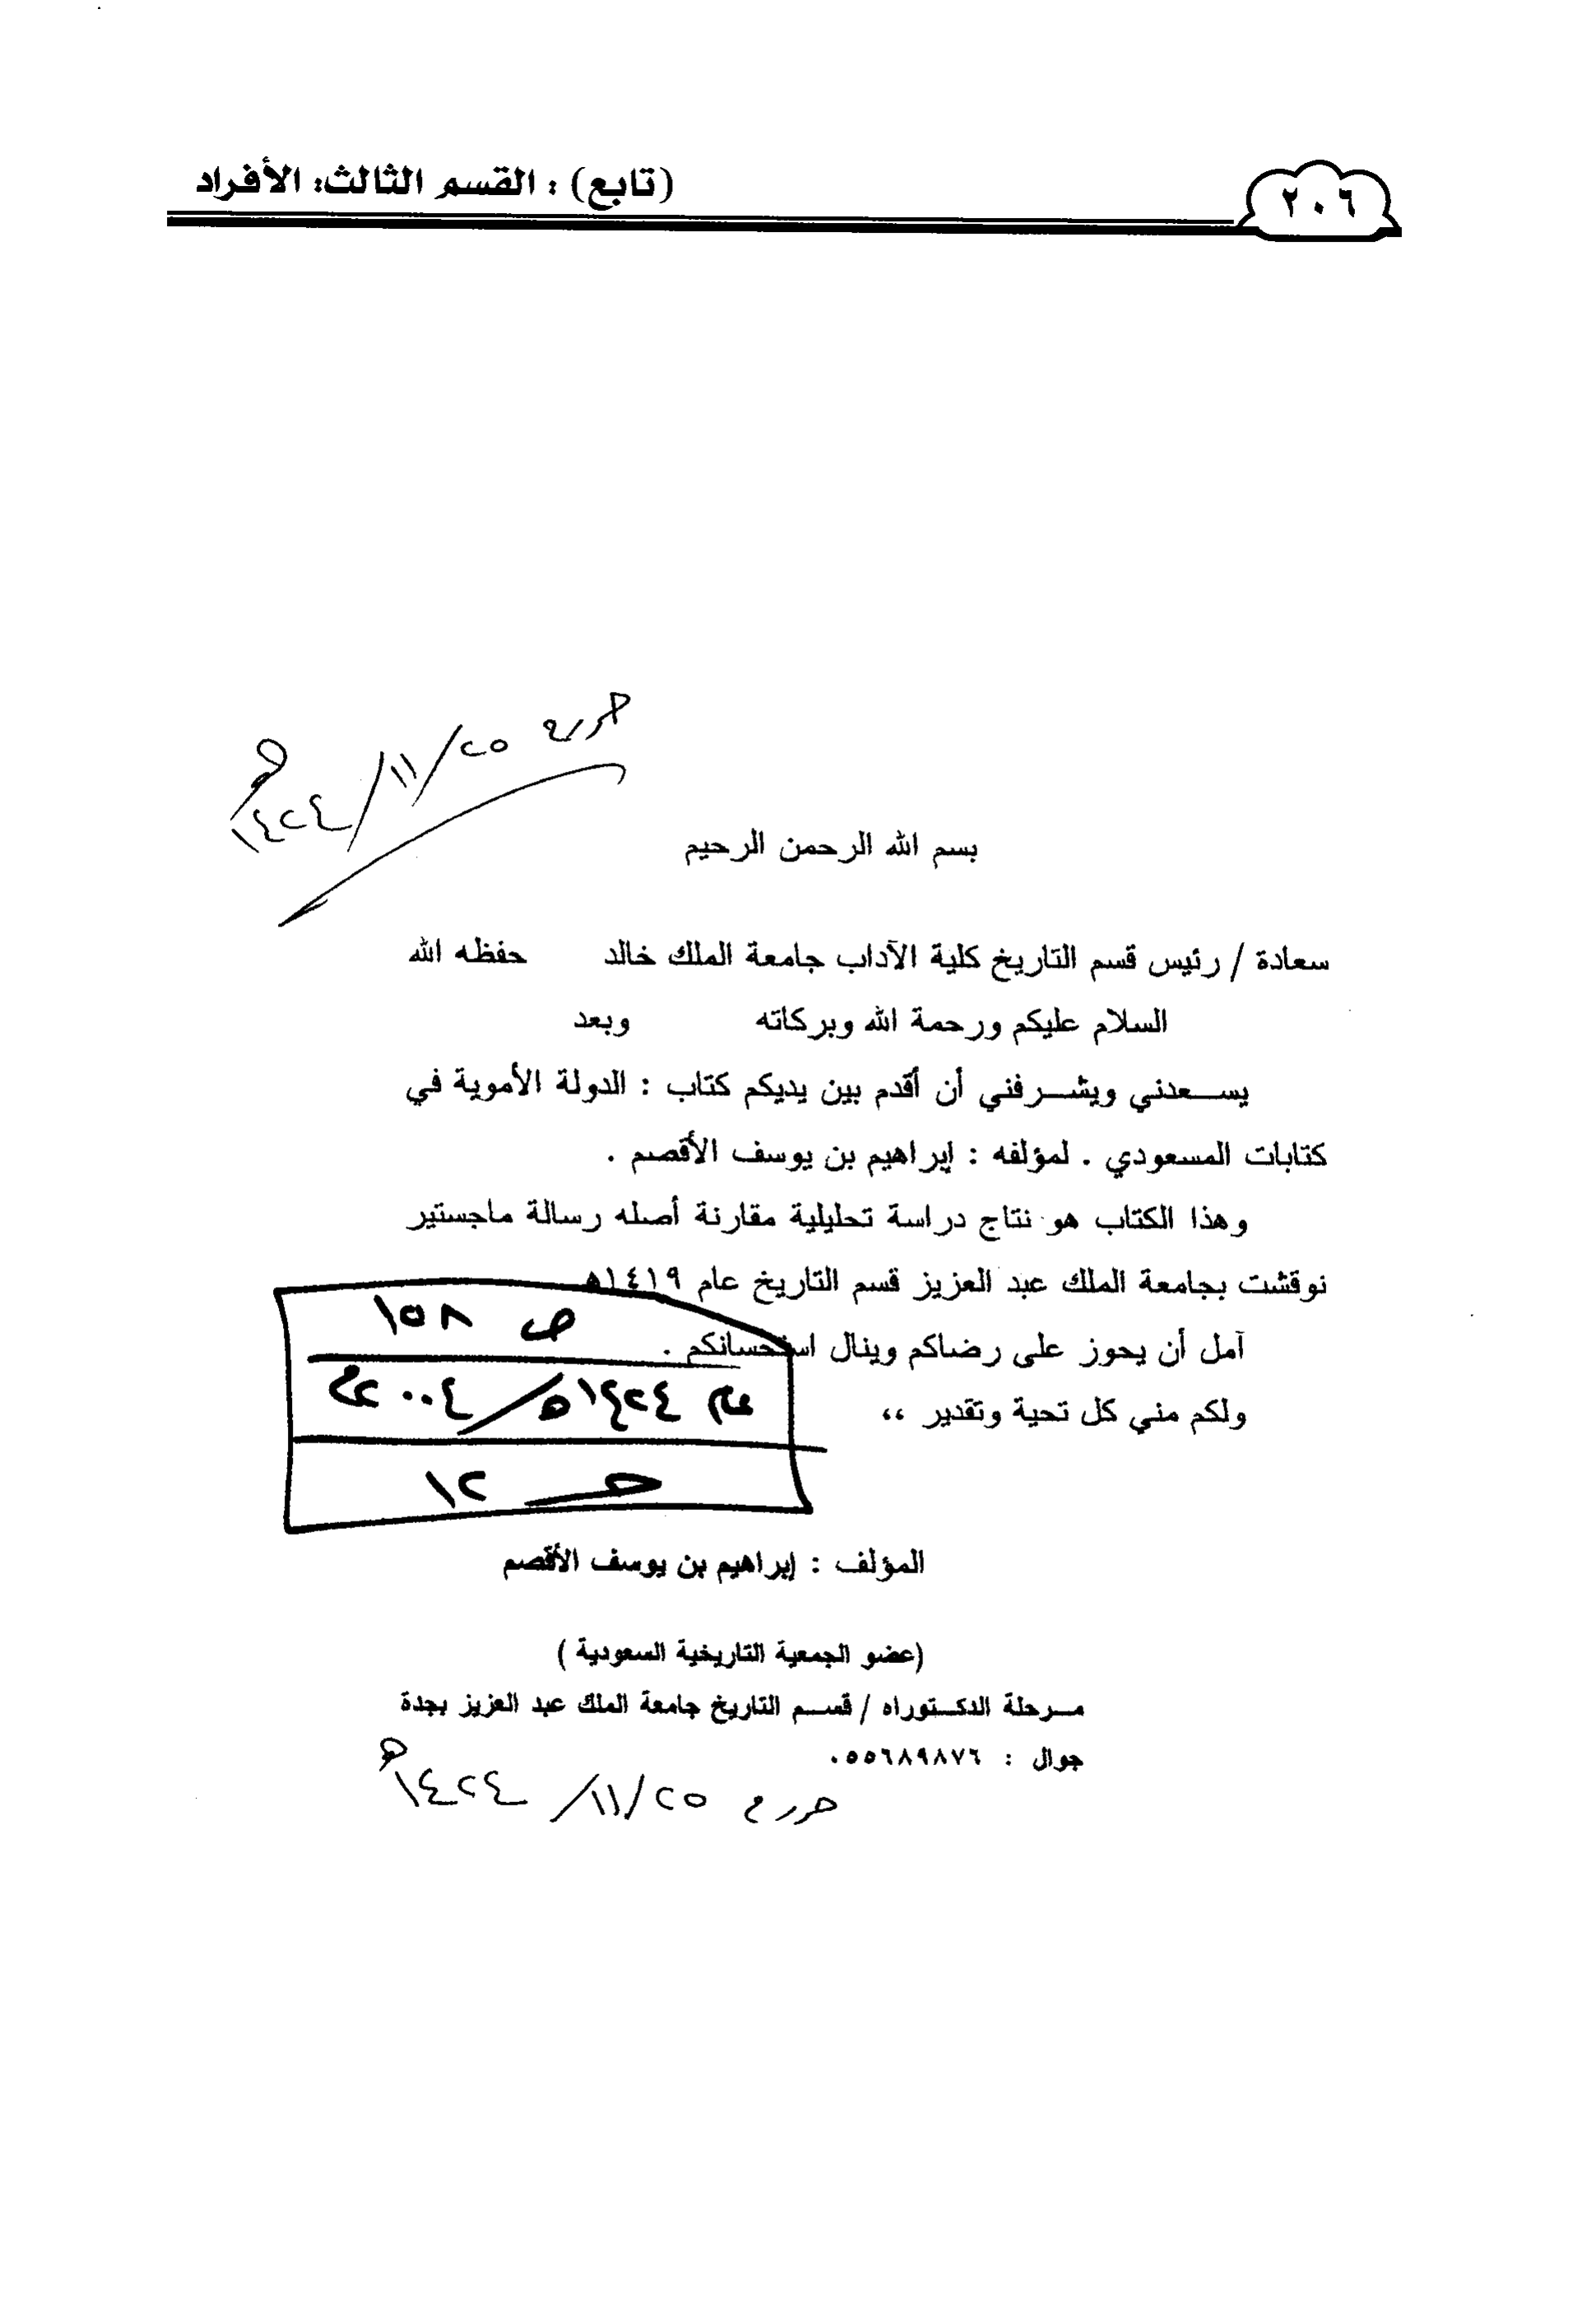 ٢٠٦
(تابع) : القسم الثالث: الأفراد
حرر في ٢٥/١١/١٤٢٤هـ
بسم الله الرحمن الرحيم
سعادة / رئيس قسم التاريخ كلية الآداب جامعة الملك خالد حفظه الله
السلام عليكم ورحمة الله وبركاته وبعد
يسعدني ويشرفني أن أقدم بين يديكم كتاب : الدولة الأموية في
كتابات المسعودي . لمؤلفه : إبراهيم بن يوسف الأقصم .
وهذا الكتاب هو نتاج دراسة تحليلية مقارنة أصله رسالة ماجستير
نوقشت بجامعة الملك عبد العزيز قسم التاريخ عام ١٤١٩هـ
آمل أن يحوز على رضاكم وينال استحسانكم .
ولكم مني كل تحية وتقدير ،،
ص ١٥٨
عام ١٤٢٤هـ/٢٠٠٤م
حـ ١٢
المؤلف : إبراهيم بن يوسف الأقصم
(عضو الجمعية التاريخية السعودية )
مرحلة الدكتوراه / قسم التاريخ جامعة الملك عبد العزيز بجدة
جوال : ٠٥٥٦٨٩٨٧٦
حرر في ٢٥/١١/١٤٢٤هـ